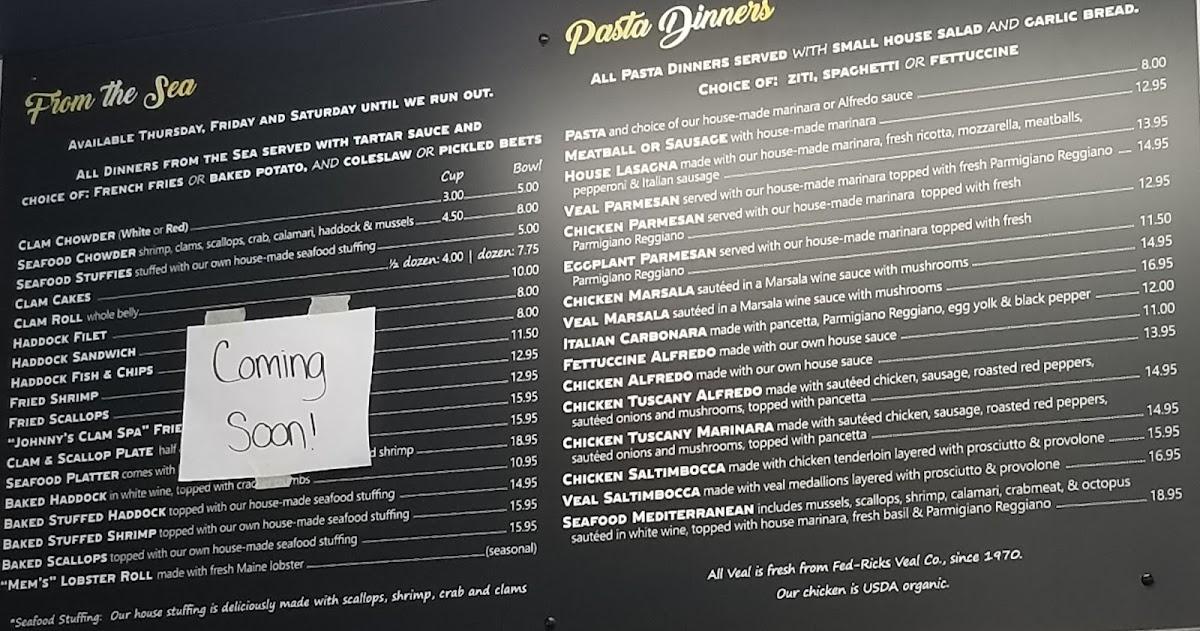 From the Sea
Available Thursday, Friday and Saturday until we run out.
All Dinners from the Sea served with tartar sauce and
choice of: French fries or baked potato, and coleslaw or pickled beets
Cup Bowl
Clam Chowder (White or Red) 3.00 5.00
Seafood Chowder shrimp, clams, scallops, crab, calamari, haddock & mussels 4.50 8.00
Seafood Stuffies stuffed with our own house-made seafood stuffing 5.00
Clam Cakes ½ dozen: 4.00 | dozen: 7.75
Clam Roll whole belly 10.00
Haddock Filet 8.00
Haddock Sandwich 8.00
Haddock Fish & Chips 11.50
Fried Shrimp 12.95
Fried Scallops 12.95
"Johnny's Clam Spa" Frie 15.95
Clam & Scallop Plate half 15.95
Seafood Platter comes with d shrimp 18.95
Baked Haddock in white wine, topped with 10.95
Baked Stuffed Haddock topped with our house-made seafood stuffing 14.95
Baked Stuffed Shrimp topped with our own house-made seafood stuffing 15.95
Baked Scallops topped with our own house-made seafood stuffing 15.95
"Mem's" Lobster Roll made with fresh Maine lobster (seasonal)
*Seafood Stuffing: Our house stuffing is deliciously made with scallops, shrimp, crab and clams
Coming
Soon!
Pasta Dinners
All Pasta Dinners served with small house salad and garlic bread.
Choice of: ziti, spaghetti or fettuccine
Pasta and choice of our house-made marinara or Alfredo sauce 8.00
Meatball or Sausage with house-made marinara 12.95
House Lasagna made with our house-made marinara, fresh ricotta, mozzarella, meatballs,
pepperoni & Italian sausage 13.95
Veal Parmesan served with our house-made marinara topped with fresh Parmigiano Reggiano 14.95
Chicken Parmesan served with our house-made marinara topped with fresh
Parmigiano Reggiano 12.95
Eggplant Parmesan served with our house-made marinara topped with fresh
Parmigiano Reggiano 11.50
Chicken Marsala sautéed in a Marsala wine sauce with mushrooms 14.95
Veal Marsala sautéed in a Marsala wine sauce with mushrooms 16.95
Italian Carbonara made with pancetta, Parmigiano Reggiano, egg yolk & black pepper 12.00
Fettuccine Alfredo made with our own house sauce 11.00
Chicken Alfredo made with our own house sauce 13.95
Chicken Tuscany Alfredo made with sautéed chicken, sausage, roasted red peppers,
sautéed onions and mushrooms, topped with pancetta 14.95
Chicken Tuscany Marinara made with sautéed chicken, sausage, roasted red peppers,
sautéed onions and mushrooms, topped with pancetta 14.95
Chicken Saltimbocca made with chicken tenderloin layered with prosciutto & provolone 15.95
Veal Saltimbocca made with veal medallions layered with prosciutto & provolone 16.95
Seafood Mediterranean includes mussels, scallops, shrimp, calamari, crabmeat, & octopus
sautéed in white wine, topped with house marinara, fresh basil & Parmigiano Reggiano 18.95
All Veal is fresh from Fed-Ricks Veal Co., since 1970.
Our chicken is USDA organic.